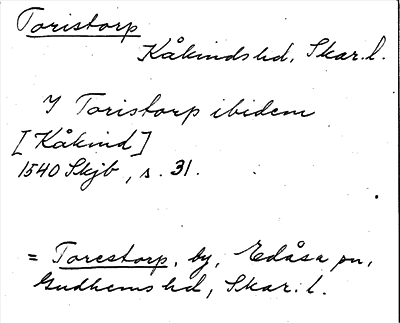 Toristorp
Kåkinds hd, Skar. l.
I Toristorp ibidem
[Kåkind]
1540 Skjb, s. 31.
= Torestorp, by, Edåsa sn,
Gudhems hd, Skar. l.